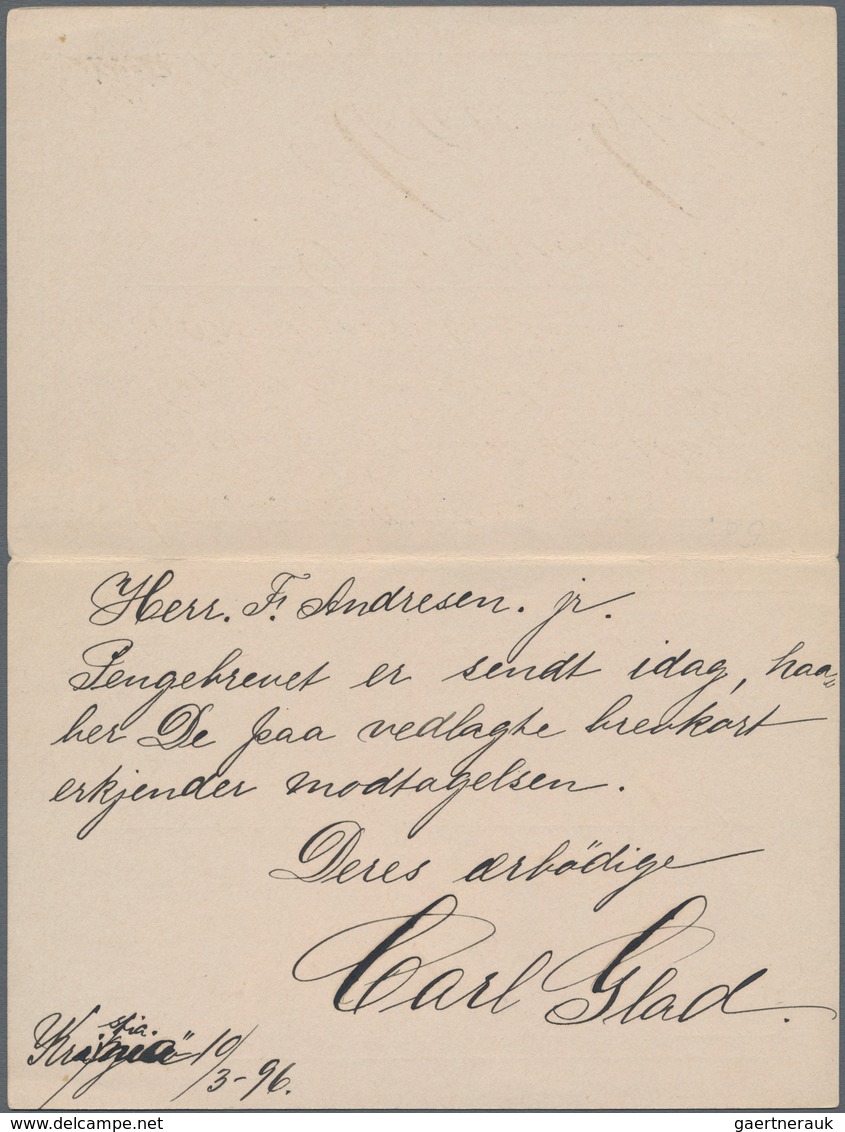 Herr. F. Andresen. jr.
Pengebrevet er sendt idag, haa=
ber De paa vedlagte brevkort
erkjender modtagelsen.
Deres ærbödige
Carl Glad.
stia.
10/3-96.
gaertnerauk